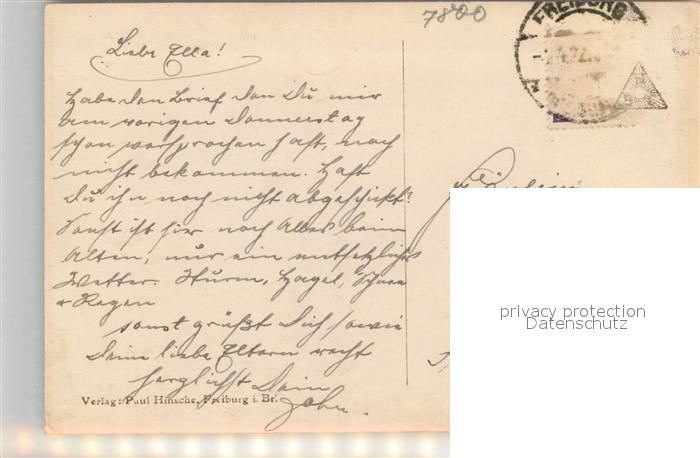 7800
FREIBURG
Liebe Ella!
Habe den Brief den Du mir
am vorigen Donnerstag
schon versprochen hast, noch
nicht bekommen. Hast
Du ihn noch nicht abgeschickt?
Sonst ist hier noch Alles beim
Alten, nur ein entsetzliches
Wetter. Sturm, Hagel, Schnee
+ Regen
sonst grüßt Dich sowie
Deine lieben Eltern recht
herzlichst Dein
Fräulein
privacy protection
Datenschutz
Verlag: Paul Hinsche, Freiburg i. Br.